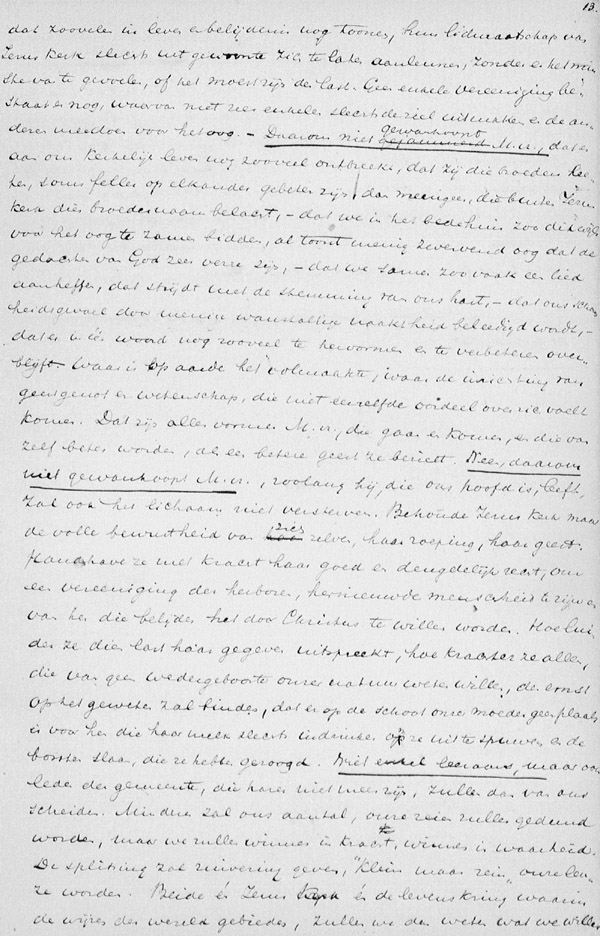 13.
dat zoovelen in leven en belijdenis nog toonen, hun lidmaatschap van
Jezus Kerk slechts uit gewoonte zich te laten aanleunen, zonder er het min
ste van te gevoelen, of het moest zijn de last. Geen enkele vereeniging be
staat er nog, waarvan niet zeer enkelen slechts de ziel uitmaken en de an-
deren meedoen voor het oog. - Daarom niet gewanhoopt M. vr., dat er
aan ons kerkelijk leven nog zooveel ontbreekt, dat zij die broeders hee
ten, soms feller op elkander gebeten zijn, dan menigeen, die buiten Jezus
kerk dien broedernaam belacht, - dat we in het bedehuis zoo dikwijls
voor het oog te zamen bidden, al toont menig zwervend oog dat de
gedachten van God zeer verre zijn, - dat we samen zoo vaak een lied
aanheffen, dat strijdt met de stemming van ons hart, - dat ons schoon
heidsgevoel door menige wanstaltige naaktheid beleedigd wordt, -
dat er in één woord nog zooveel te hervormen en te verbeteren over-
blijft. Waar is op aarde het volmaakte, waar de inrichting van
geestgenot en wetenschap, die niet eenzelfde oordeel over zich voelt
komen. Dat zijn alles vormen M. vr., die gaan en komen, en die van
zelf beter worden, als een betere geest ze bezielt. Neen, daarom
niet gewanhoopt M. vr., zoolang hij, die ons hoofd is, leeft,
zal ook het lichaam niet versterven. Behoude Jezus Kerk maar
de volle bewustheid van zich zelve, haar roeping, haar geest.
Handhave ze met kracht haar goed en deugdelijk recht, om
een vereeniging der herboren, hernieuwde menschheid te zijn en
van hen die belijden het door Christus te willen worden. Hoe lui
der ze dien last haar gegeven uitspreekt, hoe krachtiger ze allen,
die van geen wedergeboorte onzer natuur weten willen, den ernst
op het geweten zal binden, dat er op de schoot onzer moeder geen plaats
is voor hen die haar melk slechts indrinken om ze uit te spuwen en de
borsten slaan, die ze hebben gezoogd. Niet enkel leeraars, maar ook
leden der gemeente, die harer niet meer zijn, zullen dan van ons
scheiden. Minder zal ons aantal, onze rijen zullen gedund
worden, maar we zullen winnen in kracht, winnen in waarheid.
De splitsing zal zuivering geven, "klein maar rein" onze leu-
ze worden. Beide én Jezus Kerk én de levenskring waarin
de wijzen der wereld gebieden, zullen we dan weten wat we willen